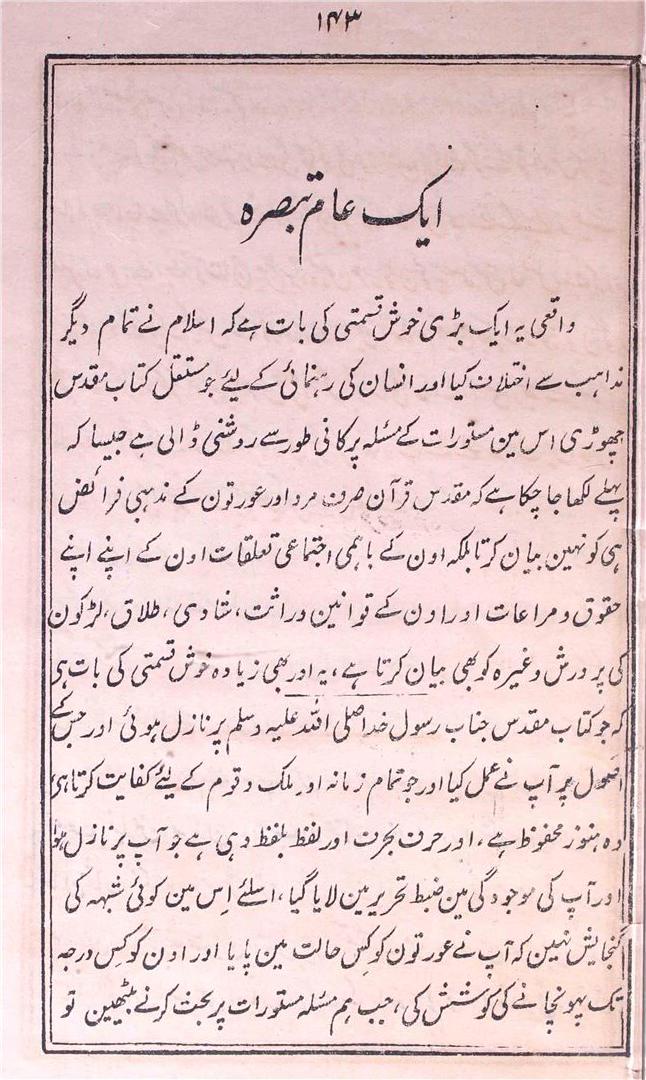 ۱۴۳
ایک عام تبصرہ
واقعی یہ ایک بڑی خوش قسمتی کی بات ہے کہ اسلام نے تمام دیگر
مذاہب سے اختلاف کیا اور انسان کی رہنمائی کے لیئے جو مستقل کتاب مقدس
چھوڑی اس مین مستورات کے مسئلہ پر کافی طور سے روشنی ڈالی ہے جیسا کہ
پہلے لکھا جا چکا ہے کہ مقدس قرآن صرف مرد اور عورتون کے مذہبی فرائض
ہی کو نہین بیان کرتا بلکہ اون کے باہمی اجتماعی تعلقات اون کے اپنے اپنے
حقوق و مراعات اور اون کے قوانین وراثت، شادی، طلاق، لڑکون
کی پرورش وغیرہ کو بھی بیان کرتا ہے، یہ اور بھی زیادہ خوش قسمتی کی بات ہی
کہ جو کتاب مقدس جناب رسول خدا صلی اللہ علیہ وسلم پر نازل ہوئی اور جس کے
اصول پر آپ نے عمل کیا اور جو تمام زمانہ اور ملک و قوم کے لیئے کفایت کرتا ہی
وہ ہنوز محفوظ ہے، اور حرف بحرف اور لفظ بلفظ وہی ہے جو آپ پر نازل ہوا
اور آپ کی موجودگی مین ضبط تحریر مین لایا گیا، اسلئے اِس مین کوئی شبہہ کی
گنجایش نہین کہ آپ نے عورتون کو کِس حالت مین پایا اور اون کو کِس درجہ
تک پہونچانے کی کوشش کی، جب ہم مسئلہ مستورات پر بحث کرنے بیٹھین تو